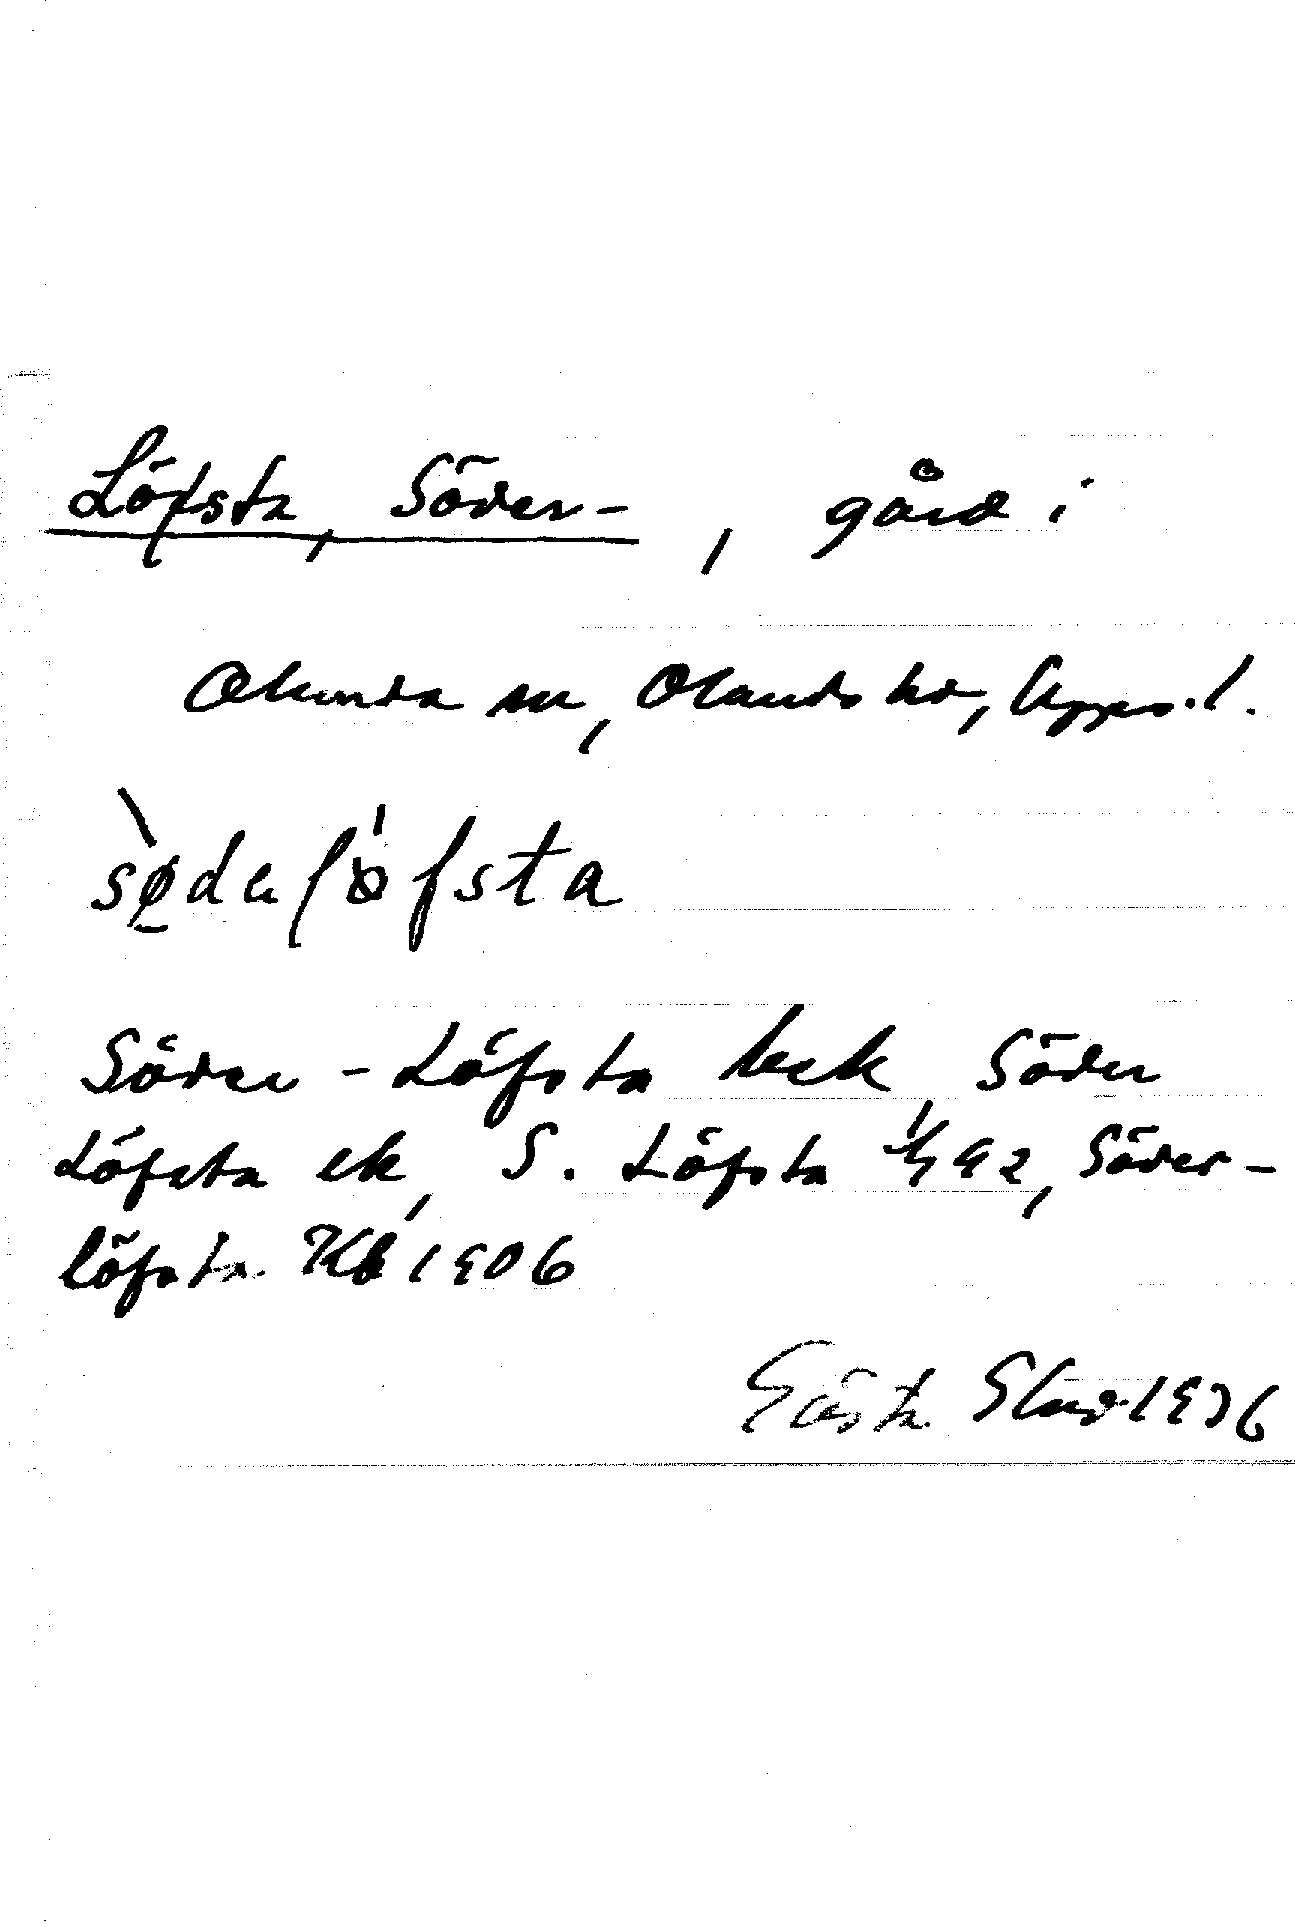 Löfsta, Söder-, gård i
Alunda sn, Olands hd, Upps. l.
sødelöfsta
Söder-Löfsta beck, Söder
Löfsta ek, S. Löfsta 92, Söder-
löfsta Kb 1906
Gösta 1936